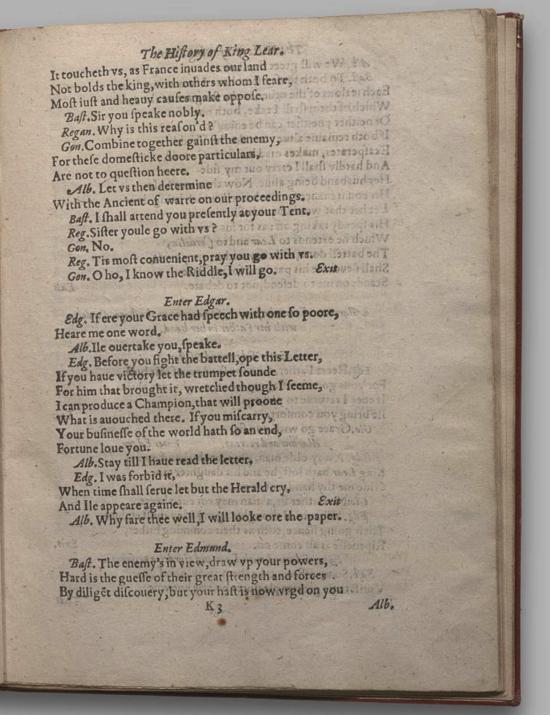 The History of King Lear.
It toucheth vs, as France inuades our land
Not bolds the king, with others whom I feare,
Most iust and heauy causes make oppose.
Bast. Sir you speake nobly.
Regan. Why is this reason'd?
Gon. Combine together gainst the enemy,
For these domesticke doore particulars,
Are not to question heere.
Alb. Let vs then determine
With the Ancient of warre on our proceedings.
Bast. I shall attend you presently at your Tent.
Reg. Sister youle go with vs?
Gon. No.
Reg. Tis most conuenient, pray you go with vs.
Gon. O ho, I know the Riddle, I will go. Exit
Enter Edgar.
Edg. If ere your Grace had speech with one so poore,
Heare me one word.
Alb. Ile ouertake you, speake.
Edg. Before you fight the battell, ope this Letter,
If you haue victory let the trumpet sounde
For him that brought it, wretched though I seeme,
I can produce a Champion, that will prooue
What is auouched there. If you miscarry,
Your businesse of the world hath so an end,
Fortune loue you.
Alb. Stay till I haue read the letter.
Edg. I was forbid it,
When time shall serue let but the Herald cry,
And Ile appeare againe. Exit
Alb. Why fare thee well, I will looke ore the paper.
Enter Edmund.
Bast. The enemy's in view, draw vp your powers,
Hard is the guesse of their great strength and forces
By diligēt discouery, but your hast is now vrgd on you
K 3 Alb.